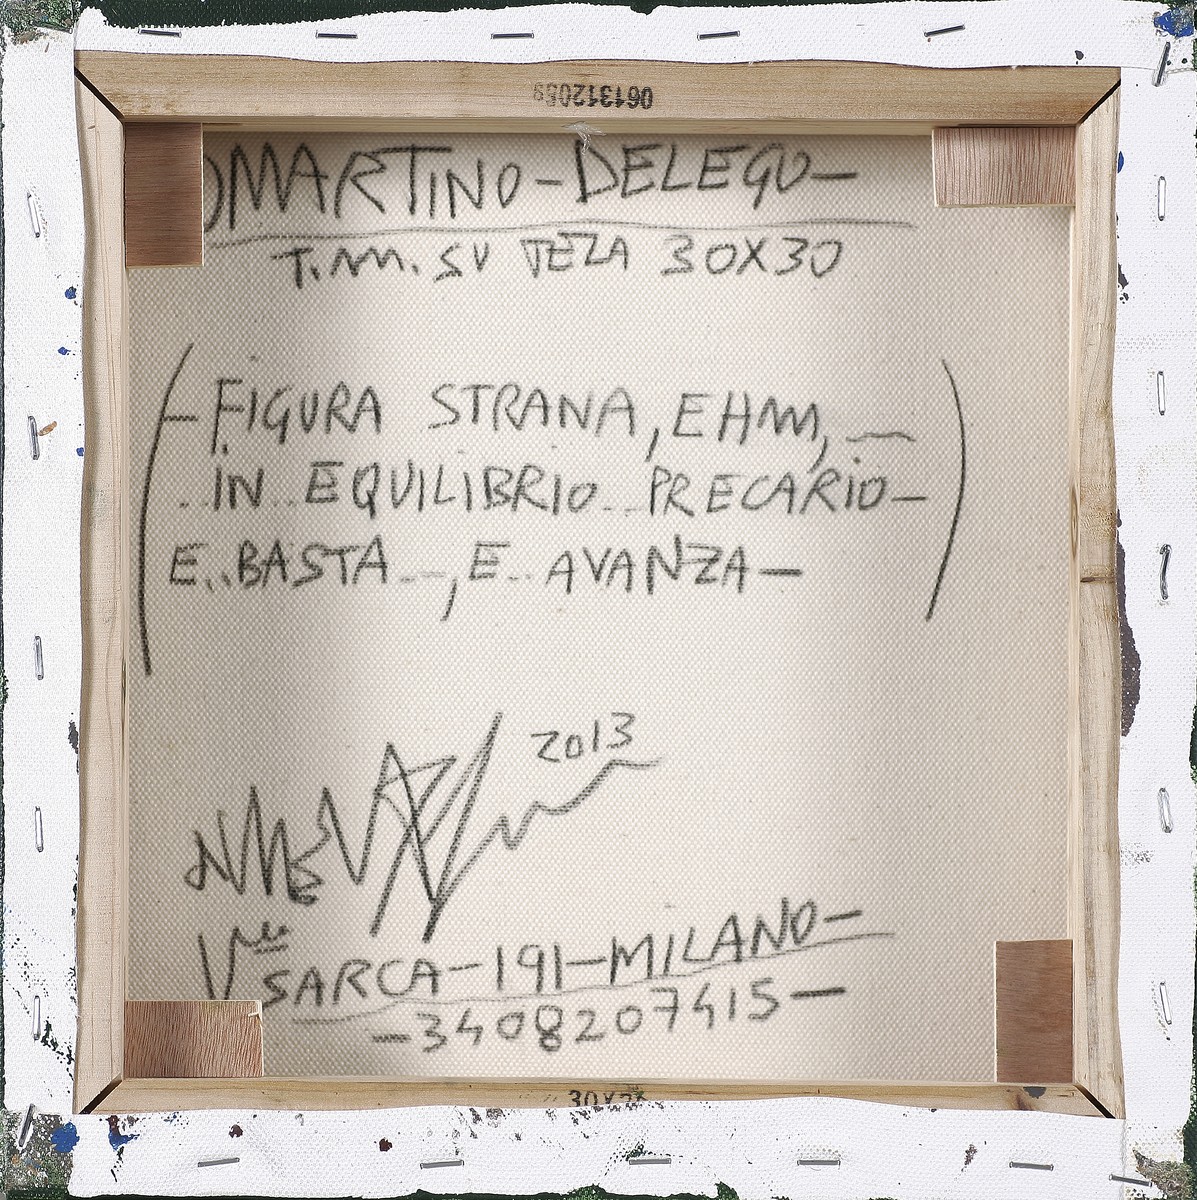 061312089
OMARTINO-DELEGO-
T.M. SU TEZA 30X30
(-FIGURA STRANA, EHM,
IN EQUILIBRIO PRECARIO-
E BASTA, E AVANZA-)
2013
V.le SARCA-191-MILANO-
-3408207415-